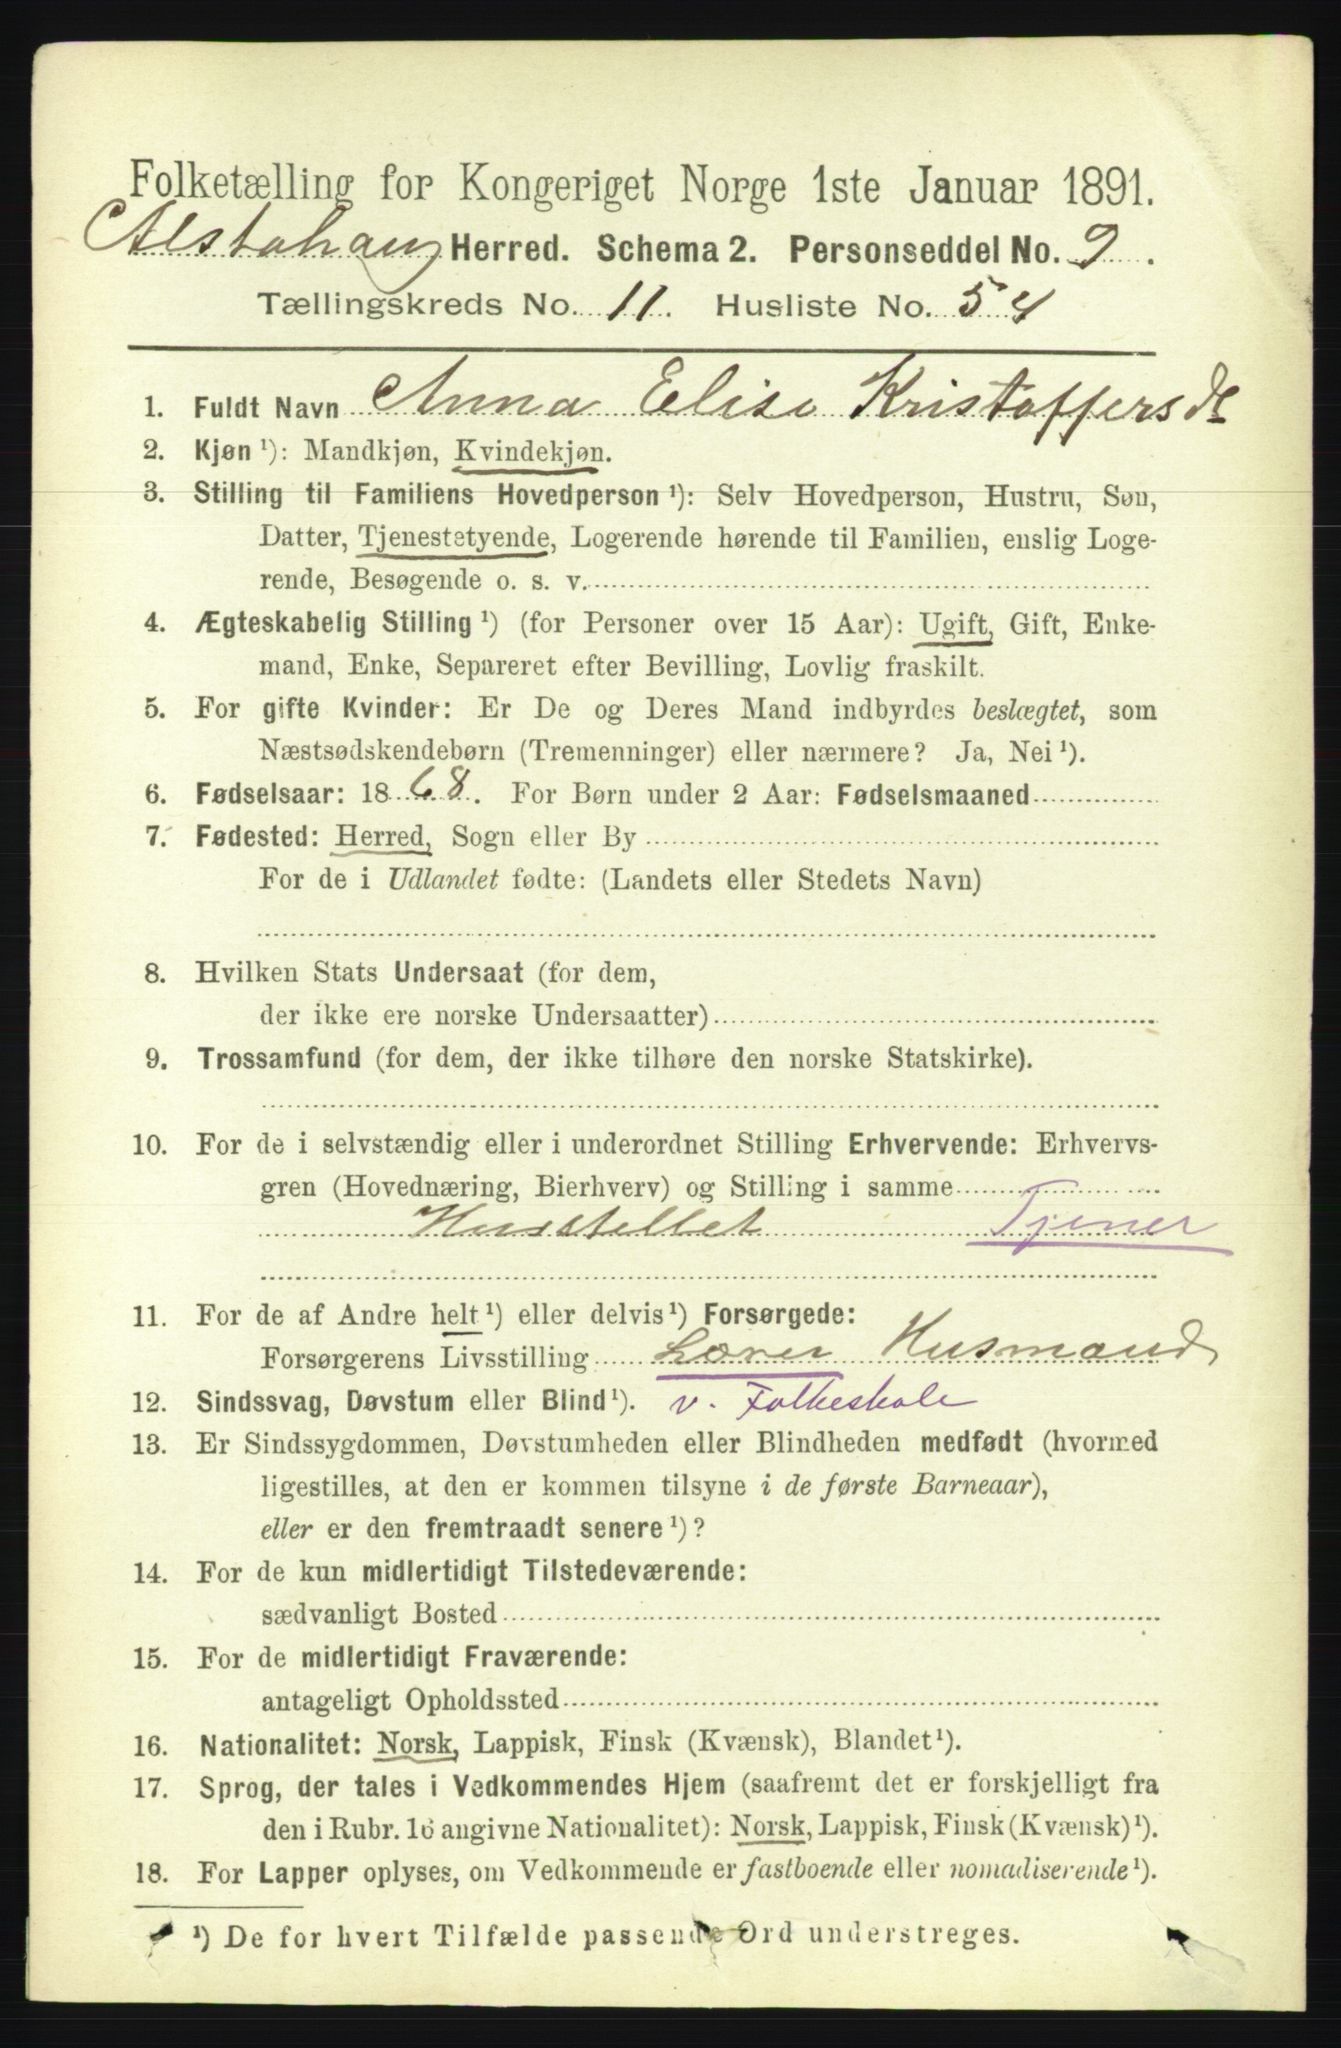 Folketælling for Kongeriget Norge 1ste Januar 1891.
Alstahaug Herred. Schema 2. Personseddel No. 9.
Tællingskreds No. 11. Husliste No. 54
1. Fuldt Navn Anna Elise Kristoffersd
2. Kjøn ¹): Mandkjøn, Kvindekjøn.
3. Stilling til Familiens Hovedperson ¹): Selv Hovedperson, Hustru, Søn,
Datter, Tjenestetyende, Logerende hørende til Familien, enslig Loge-
rende, Besøgende o. s. v.
4. Ægteskabelig Stilling ¹) (for Personer over 15 Aar): Ugift, Gift, Enke-
mand, Enke, Separeret efter Bevilling, Lovlig fraskilt.
5. For gifte Kvinder: Er De og Deres Mand indbyrdes beslægtet, som
Næstsødskendebørn (Tremenninger) eller nærmere? Ja, Nei ¹).
6. Fødselsaar: 1868. For Børn under 2 Aar: Fødselsmaaned
7. Fødested: Herred, Sogn eller By
For de i Udlandet fødte: (Landets eller Stedets Navn)
8. Hvilken Stats Undersaat (for dem,
der ikke ere norske Undersaatter)
9. Trossamfund (for dem, der ikke tilhøre den norske Statskirke).
10. For de i selvstændig eller i underordnet Stilling Erhvervende: Erhvervs-
gren (Hovednæring, Bierhverv) og Stilling i samme
Husstellet Tjener
11. For de af Andre helt ¹) eller delvis ¹) Forsørgede:
Forsørgerens Livsstilling Lærer Husmand
12. Sindssvag, Døvstum eller Blind ¹). v. Folkeskole
13. Er Sindssygdommen, Døvstumheden eller Blindheden medfødt (hvormed
ligestilles, at den er kommen tilsyne i de første Barneaar),
eller er den fremtraadt senere ¹)?
14. For de kun midlertidigt Tilstedeværende:
sædvanligt Bosted
15. For de midlertidigt Fraværende:
antageligt Opholdssted
16. Nationalitet: Norsk, Lappisk, Finsk (Kvænsk), Blandet ¹).
17. Sprog, der tales i Vedkommendes Hjem (saafremt det er forskjelligt fra
den i Rubr. 16 angivne Nationalitet): Norsk, Lappisk, Finsk (Kvænsk) ¹).
18. For Lapper oplyses, om Vedkommende er fastboende eller nomadiserende ¹).
¹) De for hvert Tilfælde passende Ord understreges.